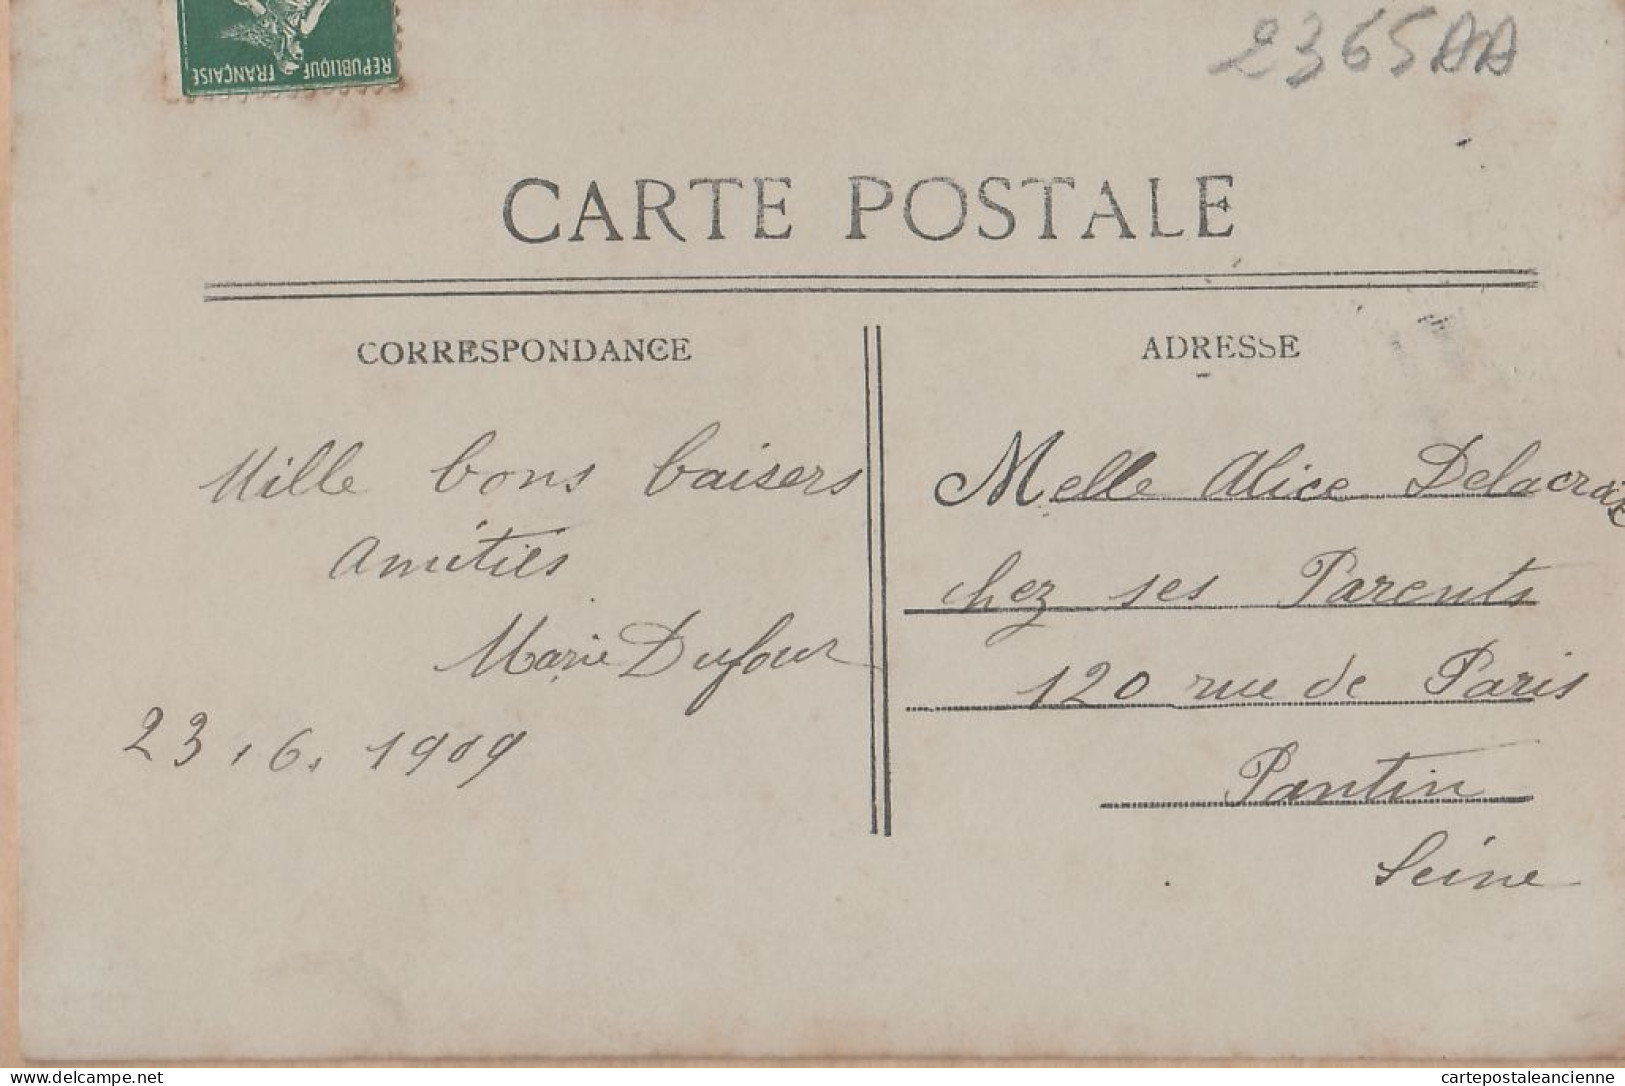 REPUBLIQUE FRANÇAISE
2365AA
CARTE POSTALE
CORRESPONDANCE
ADRESSE
Mille bons baisers
Amitiés
Marie Dufour
23.6.1909
Melle Alice Delacroix
chez ses Parents
120 rue de Paris
Pantin
Seine
delcampe.net
cartepostaleancienne